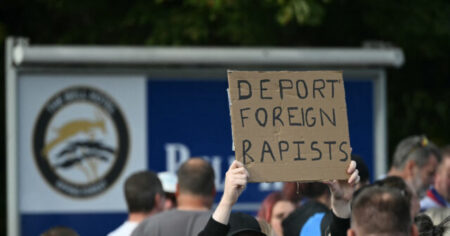 THE BELL HOTEL
DEPORT
FOREIGN
RAPISTS